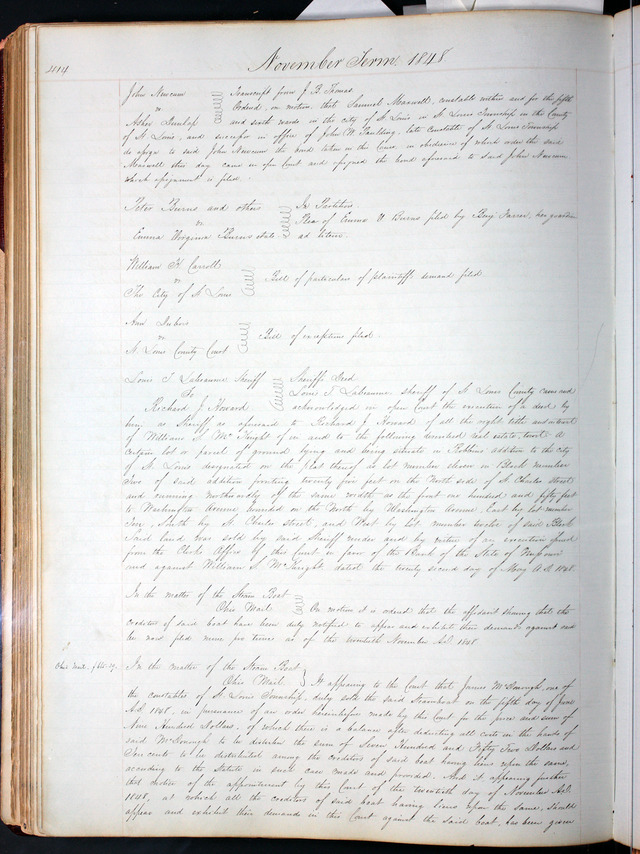 414
November Term 1848
John Newcum
vs
Asher Dunlap
Transcript from J. B. Thomas
Ordered on motion, that Samuel Maxwell, constable within and for the fifth
and sixth wards in the city of St Louis in St Louis Township in the County
of St Louis, and successor in office of John W. Paulding, late Constable of St Louis Township
do assign to said John Newcum the bond taken in this cause, in obedience of which order the said
Maxwell this day came in open Court and assigned the bond aforesaid to said John Newcum
which assignment is filed.
Peter Burns and others
vs
Emma Virginia Burns
In Partition
Plea of Emma V Burns filed by Benj. Farrar, her guardian
ad litem.
William H Carroll
vs
The City of St Louis
Bill of particulars of plaintiffs demand filed.
Ann
vs
St Louis County Court
Bill of exceptions filed.
Louis T Labeaume Sheriff
To
Richard J Howard
Sheriff's Deed
Louis T Labeaume sheriff of St Louis County came and
acknowledged in open Court the execution of a deed by
him as Sheriff as aforesaid to Richard J Howard of all the right title and interest
of William S McKnight of in and to the following described real estate, towit: A
certain lot or parcel of ground lying and being situate in Robbins addition to the city
of St Louis designated on the plat thereof as lot number eleven in Block number
two of said addition fronting twenty five feet on the North side of St Charles street
and running northwardly of the same width as the front one hundred and fifty feet
to Washington Avenue bounded on the North by Washington Avenue, East by lot number
Ten, South by St Charles street, and West by lot number twelve of said Block
Said land was sold by said Sheriff under and by virtue of an execution issued
from the Clerks Office of this Court in favor of the Bank of the State of Missouri
and against William S McKnight dated the twenty second day of May A.D. 1848.
In the matter of the Steam Boat
Ohio Mail
On motion it is ordered that the affidavit shewing that the
creditors of said boat have been duly notified to appear and exhibit their demands against said
be now filed nunc pro tunc as of the twentieth November A.D. 1848
Ohio Mail
In the matter of the Steam Boat
Ohio Mail
It appearing to the Court that James McDonough, one of
the constables of St Louis Township, duly sold the said Steamboat on the fifth day of June
A.D. 1848, in pursuance of an order heretofore made by this Court for the price and sum of
Nine Hundred Dollars, of which there is a balance after deducting all costs in the hands of
said McDonough to be distributed the sum of Seven Hundred and Fifty Two Dollars and
Ten cents to be distributed among the creditors of said boat having liens upon the same,
according to the Statute in such case made and provided. And it appearing further
that notice of the appointment by this Court of the twentieth day of November A.D.
1848, at which all the creditors of said boat having liens upon the same, should
appear and exhibit their demands in this Court against the said boat, has been given